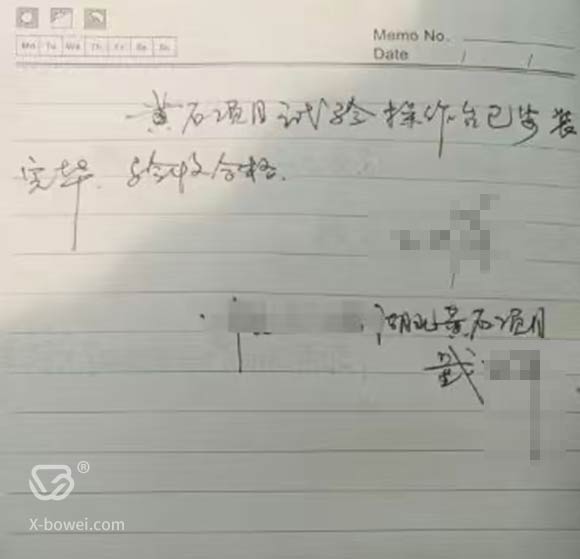 Memo No.
Mo Tu We Th Fr Sa Su
Date / /
黄石项目试验操作台已安装
完毕. 验收合格.
湖北黄石项目
®
X-bowei.com